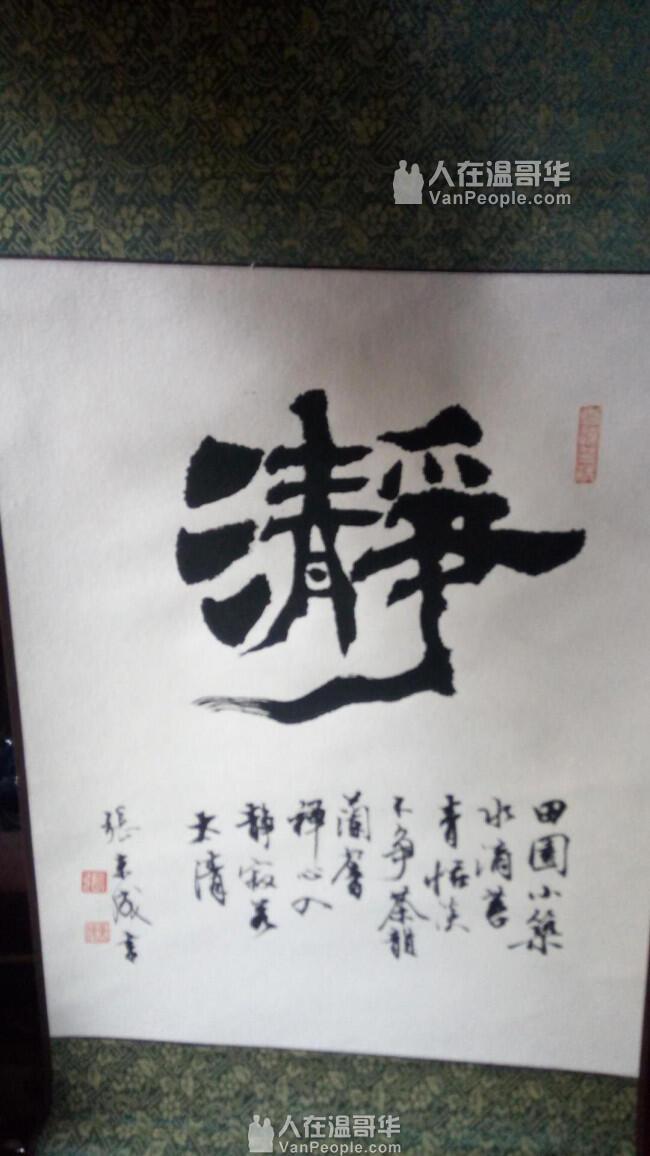 人在温哥华
VanPeople.com
瀞
田園小築
水滴苔
青恬淡
不争茶韻
蘭馨
禪心入
静寂若
太清
張東成書
人在温哥华
VanPeople.com